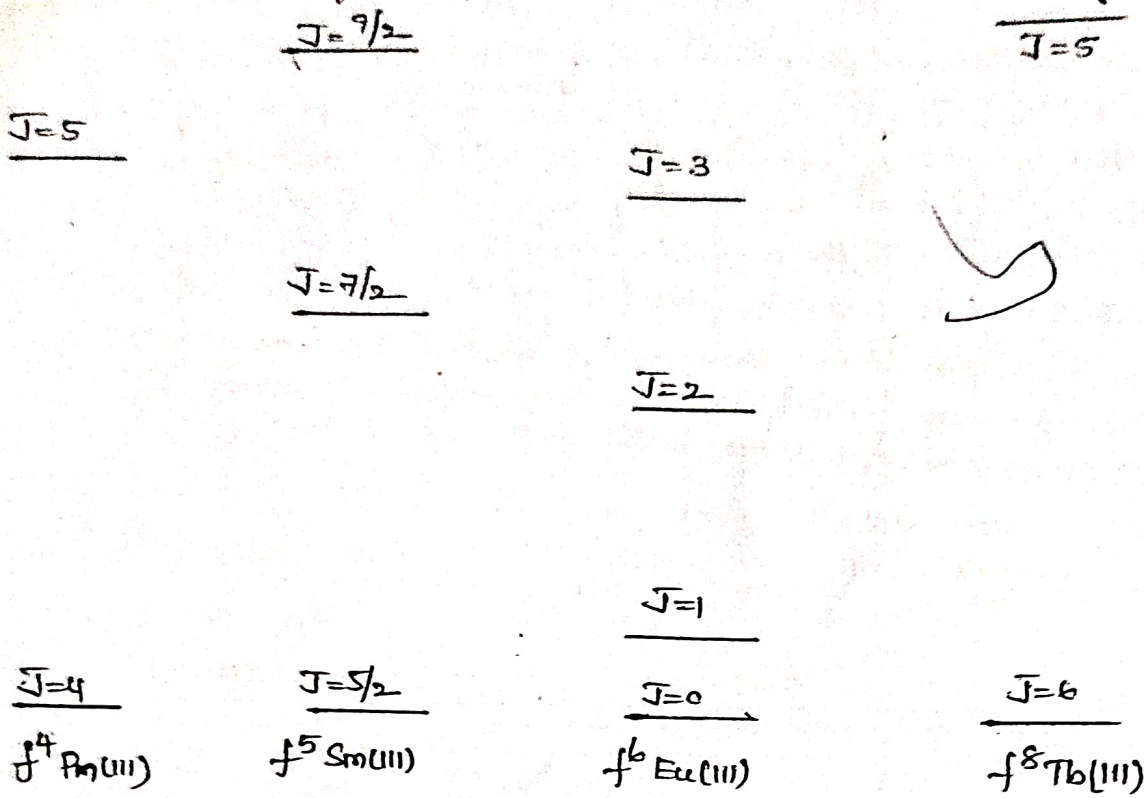 J=9/2
J=5
J=5
J=3
J=7/2
J=2
J=1
J=4
J=5/2
J=0
J=6
f⁴ Pm(III)
f⁵ Sm(III)
f⁶ Eu(III)
f⁸ Tb(III)